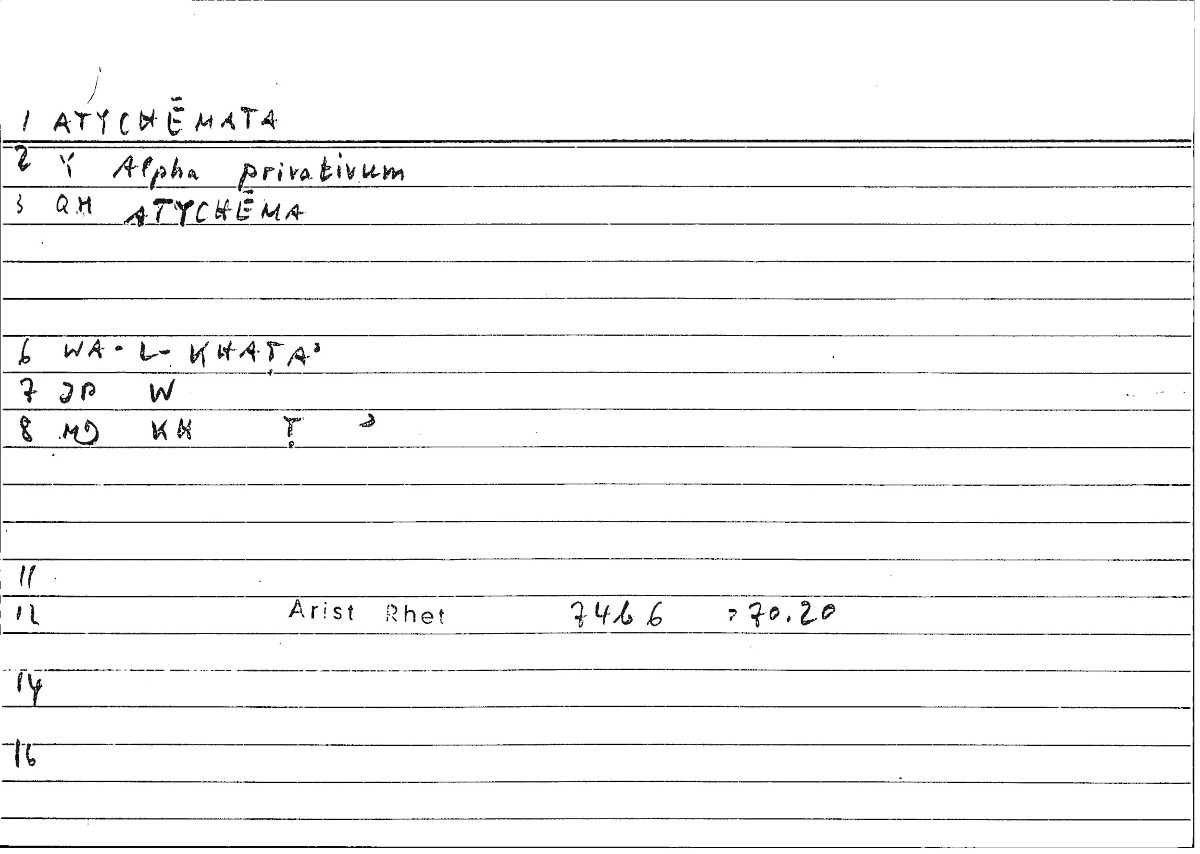 1 ATYCHĒMATA
2 Y Alpha privativum
3 QH ATYCHĒMA
6 WA-L-KHAṬAʾ
7 JP W
8 MJ KH Ṭ ʾ
11
12 Arist Rhet 74b6 =70.20
14
16